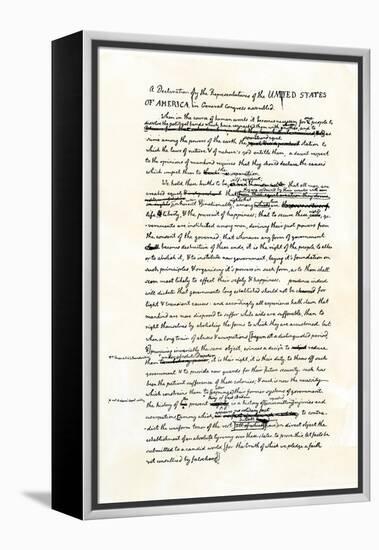 A Declaration by the Representatives of the UNITED STATES
OF AMERICA, in General Congress assembled.
When in the course of human events it becomes necessary for people to
dissolve the political bands which have connected them with and to
-sume among the powers of the earth the station to
which the laws of nature & of nature's god entitle them, a decent respect
to the opinions of mankind requires that they should declare the causes
which impel them to separation.
We hold these truths to be that all men are
created equal
life & liberty, & the pursuit of happiness; that to secure these, go-
-vernments are instituted among men, deriving their just powers from
the consent of the governed; that whenever any form of government
becomes destructive of these ends, it is the right of the people to alter
or to abolish it, & to institute new government, laying it's foundation on
such principles & organising it's powers in such form, as to them shall
seem most likely to effect their safety & happiness. prudence indeed
will dictate that governments long established should not be changed for
light & transient causes: and accordingly all experience hath shewn that
mankind are more disposed to suffer while evils are sufferable, than to
right themselves by abolishing the forms to which they are accustomed. but
when a long train of abuses & usurpations [begun at a distinguished period,
& pursuing invariably the same object, evinces a design to reduce
them it is their right, it is their duty to throw off such
government & to provide new guards for their future security. such has
been the patient sufferance of these colonies; & such is now the necessity
which constrains them to their former systems of government.
the history of present is a history of injuries and
usurpations, [among which
-dict the uniform tenor of the rest, in direct object the
establishment of an absolute tyranny over these states. to prove this let facts be
submitted to a candid world, [for the truth of which we pledge a faith
yet unsullied by falsehood]